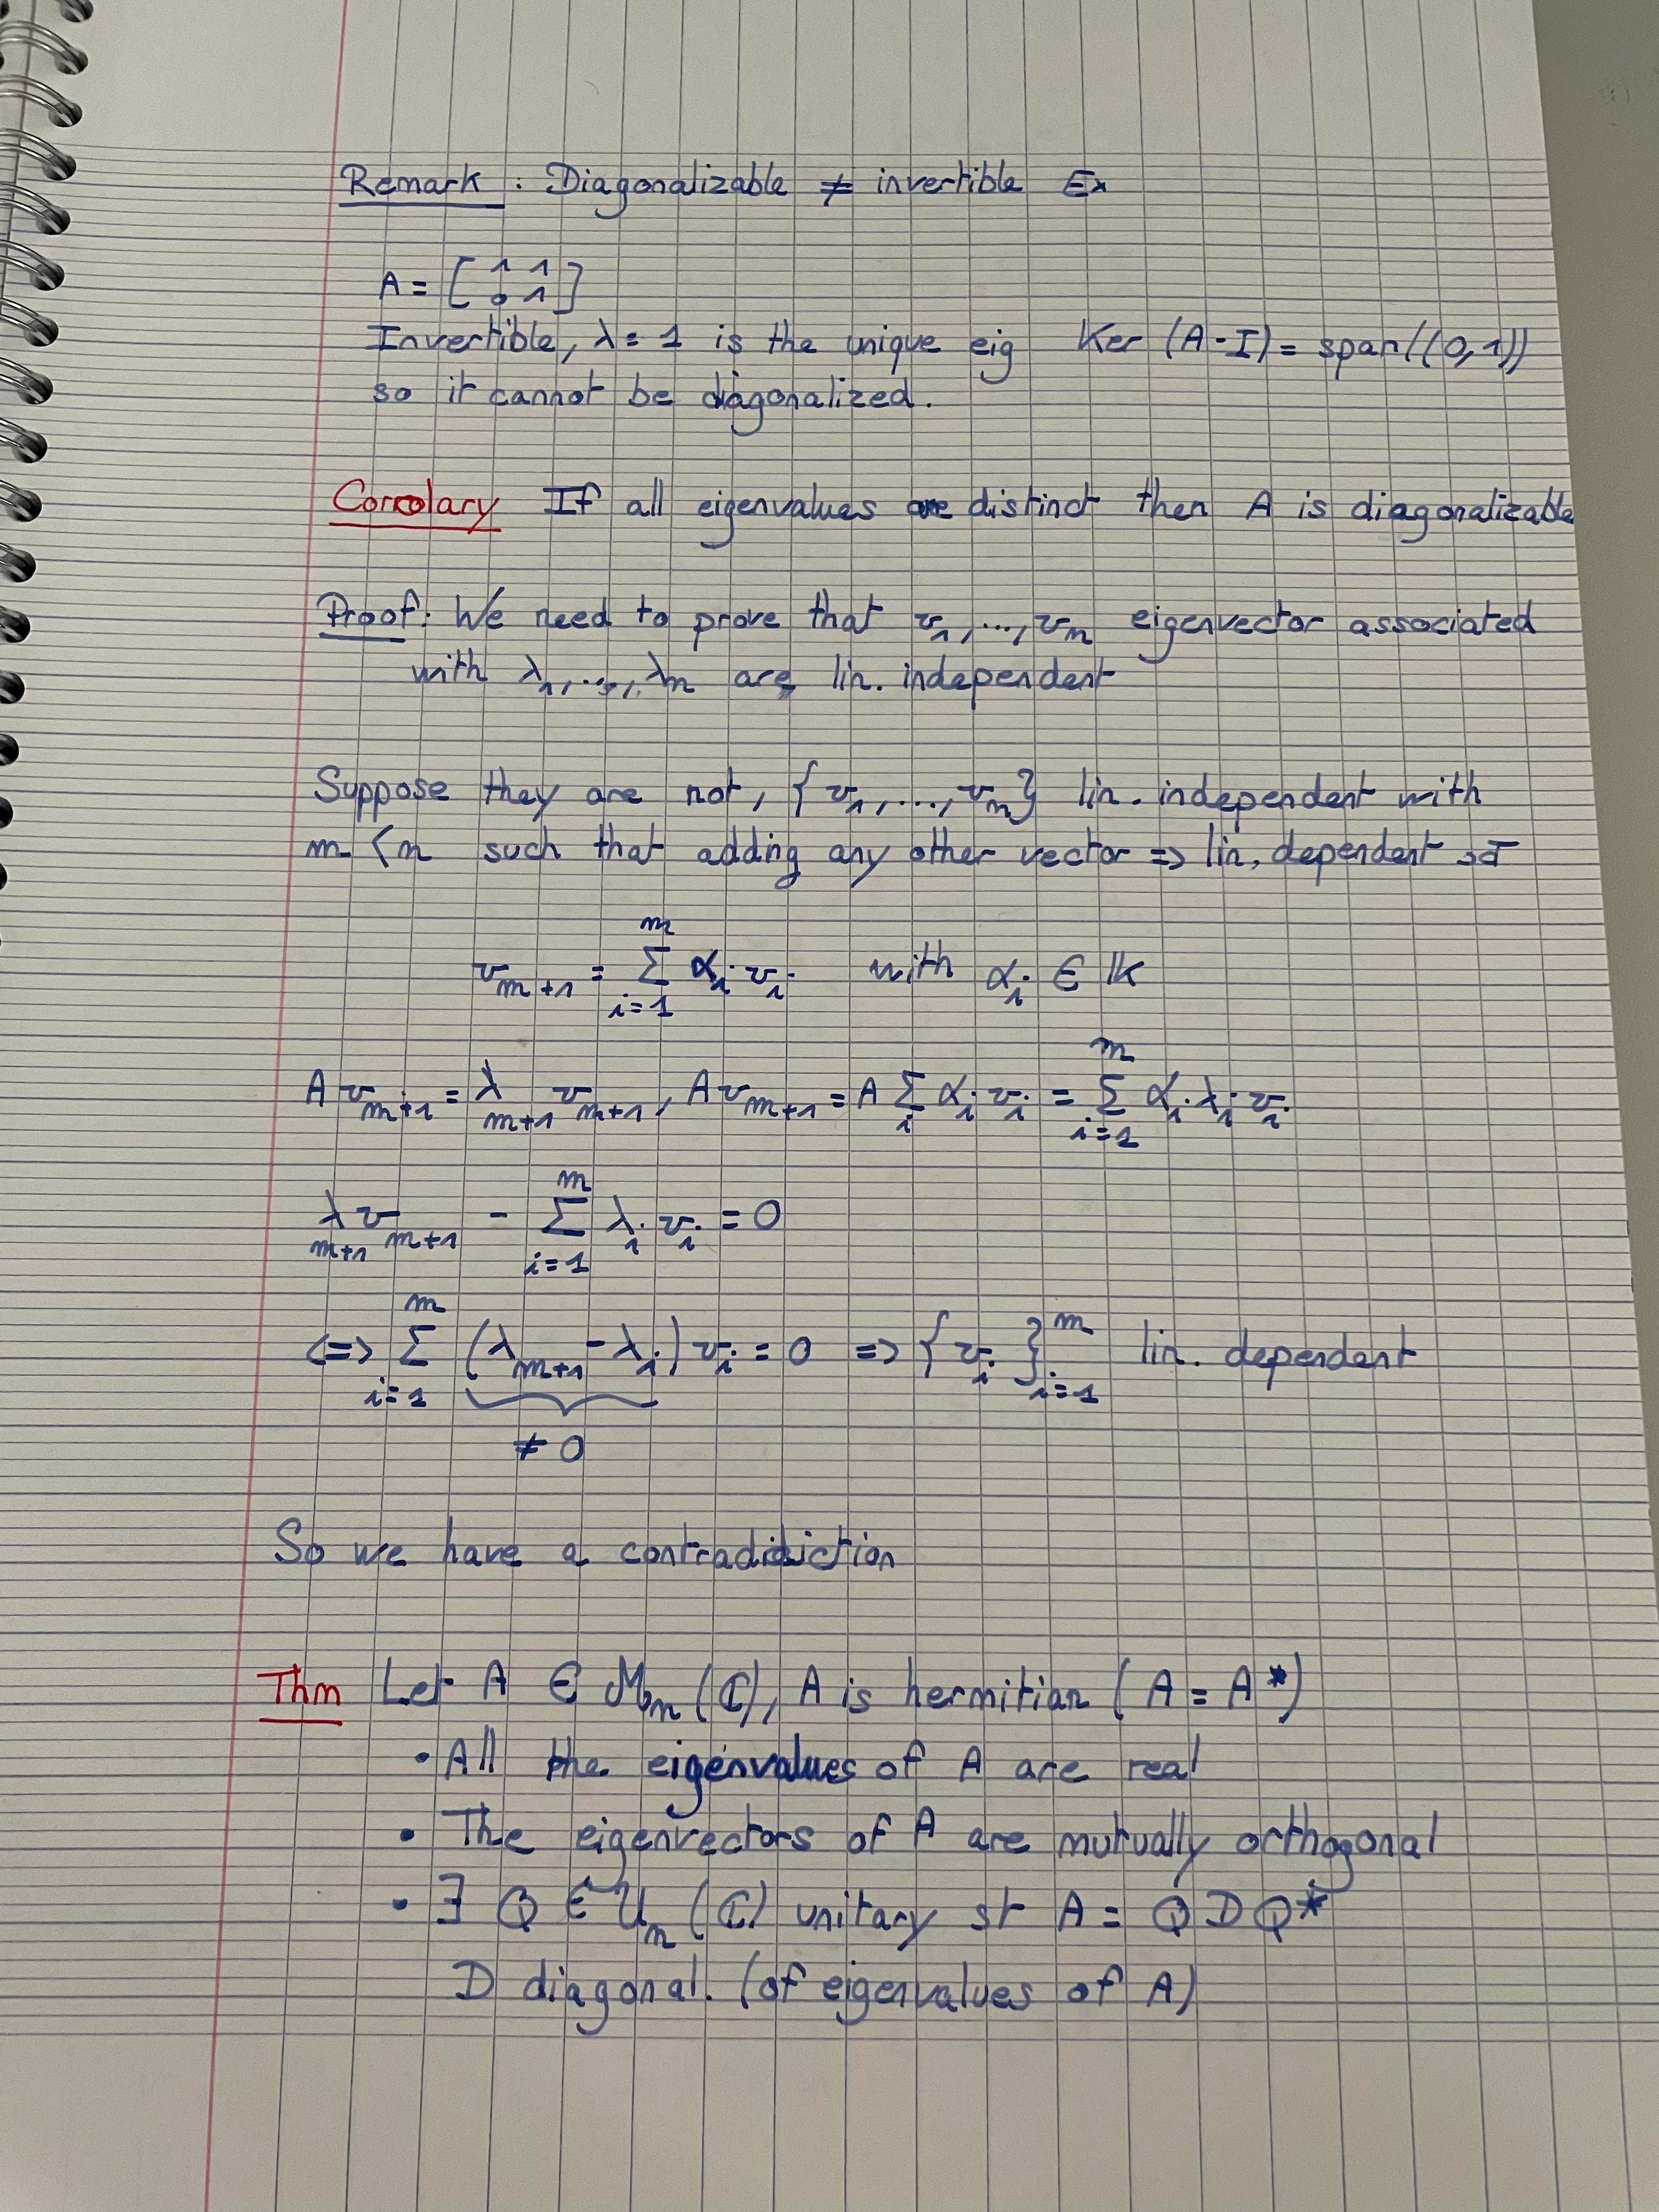 Remark : Diagonalizable ≠ invertible Ex
A = [ 1 1
0 1 ]
Invertible, λ = 1 is the unique eig Ker (A - I) = span((0,1))
so it cannot be diagonalized.
Corrolary If all eigenvalues are distinct then A is diagonalizable
Proof : We need to prove that v₁, ..., vₙ eigenvector associated
with λ₁, ..., λₙ are lin. independent
Suppose they are not, {v₁, ..., vₘ} lin. independent with
m < n such that adding any other vector => lin. dependent st
vₘ₊₁ = Σᵢ₌₁ᵐ αᵢ vᵢ with αᵢ ∈ 𝕂
A vₘ₊₁ = λₘ₊₁ vₘ₊₁, A vₘ₊₁ = A Σᵢ αᵢ vᵢ = Σᵢ₌₁ᵐ αᵢ λᵢ vᵢ
λₘ₊₁ vₘ₊₁ - Σᵢ₌₁ᵐ λᵢ vᵢ = 0
<=> Σᵢ₌₁ᵐ (λₘ₊₁ - λᵢ) vᵢ = 0 => {vᵢ}ᵢ₌₁ᵐ lin. dependent
≠ 0
So we have a contradidiction
Thm Let A ∈ Mₙ(ℂ), A is hermitian (A = A*)
• All the eigenvalues of A are real
• The eigenvectors of A are mutually orthogonal
• ∃ Q ∈ Uₙ(ℂ) unitary st A = Q D Q*
D diagonal. (of eigenvalues of A)